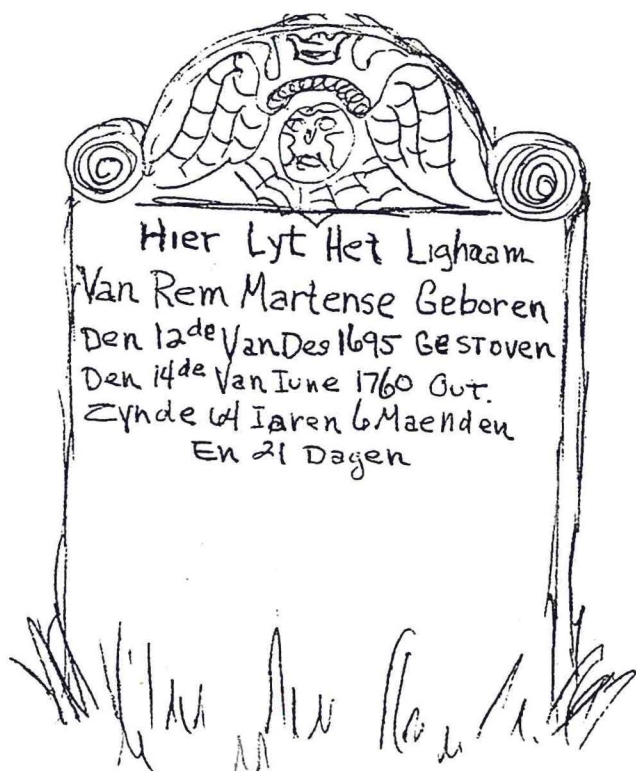 Hier Lyt Het Lighaam
Van Rem Martense Geboren
Den 12de Van Des 1695 Gestoven
Den 14de Van Iune 1760 Out.
Zynde 64 Iaren 6 Maenden
En 21 Dagen